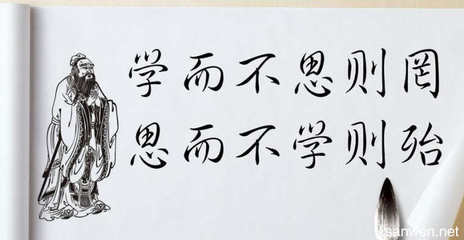 学而不思则罔
思而不学则殆
sanwen.net